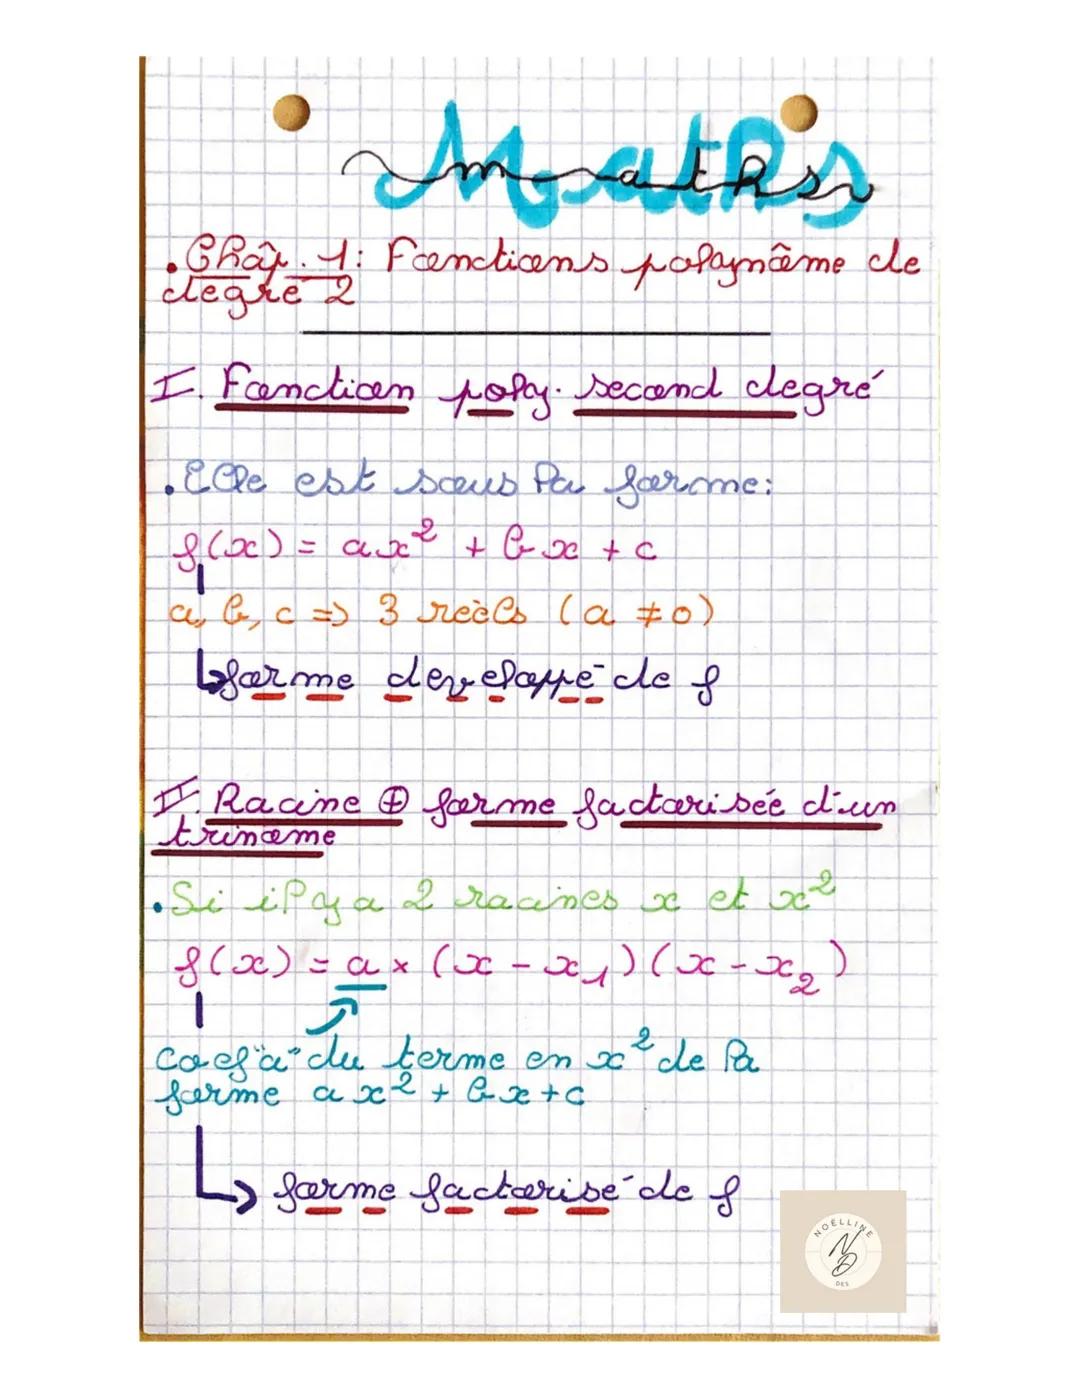 Maths
maths
• Chap. 1: Fonctions polynôme de
degré 2
I. Fonction poly. second degré
• Elle est sous la forme:
f(x) = ax² + bx + c
a, b, c => 3 réèls (a ≠ 0)
forme developpé de f
II. Racine ⊕ forme factorisée d'un
trinome
• Si il y a 2 racines x et x²
f(x) = a × (x - x₁)(x - x₂)
coef "a" du terme en x² de la
forme ax² + bx + c
forme factorisé de f
NOËLLINE
ND
DES